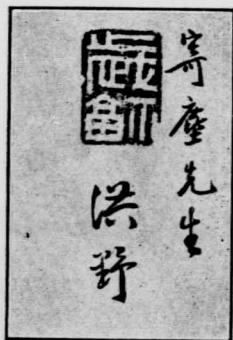 寄塵先生
洪野